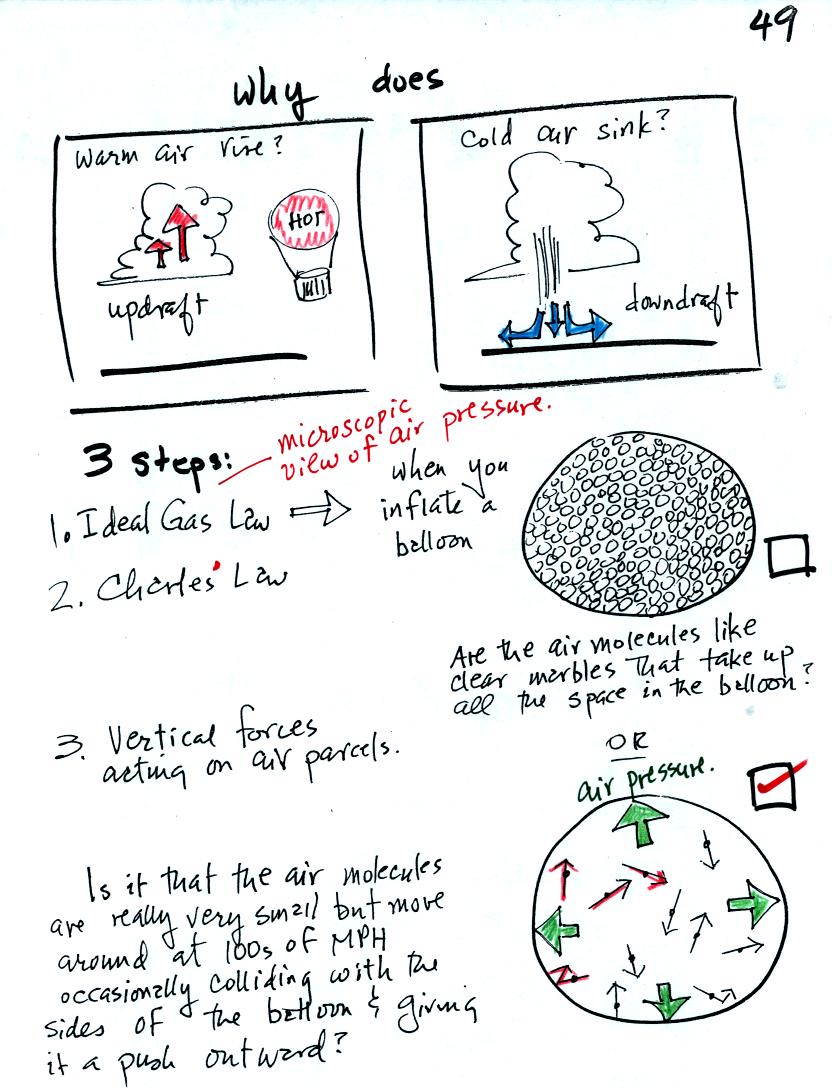 49
Why does
Warm air rise?
Cold air sink?
HOT
updraft
downdraft
3 steps:
microscopic
view of air pressure.
1. Ideal Gas Law
when you
inflate a
balloon
2. Charles' Law
Are the air molecules like
clear marbles that take up
all the space in the balloon?
3. Vertical forces
acting on air parcels.
OR
air pressure.
Is it that the air molecules
are really very small but move
around at 100s of MPH
occasionally colliding with the
sides of the balloon & giving
it a push outward?